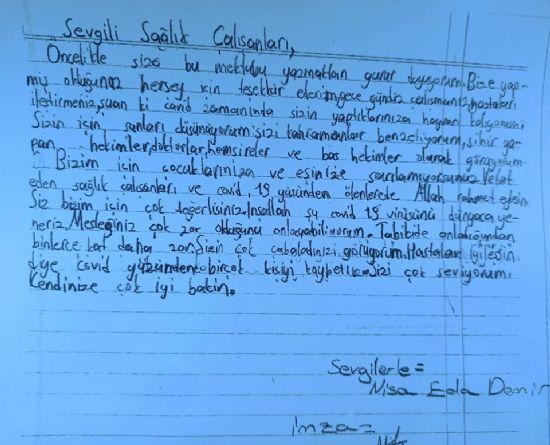 Sevgili Sağlık Çalışanları,
Öncelikle size bu mektubu yazmaktan gurur duyuyorum. Bize yap-
mış olduğunuz herşey için teşekkür ederim, gece gündüz çalışmanız, hastaları
iyileştirmeniz, şuan ki covid zamanında sizin yaptıklarınıza hayran kalıyorum.
Sizin için şunları düşünüyorum: sizi kahramanlar benzetiyorum, sihir ya-
pan hekimler, doktorlar, hemşireler ve baş hekimler olarak görüyorum.
Bizim için çocuklarınıza ve eşinize sarılamıyorsunuz. Vefat
eden sağlık çalışanları ve covid 19 yüzünden ölenlerede Allah rahmet eylesin.
Siz bizim için çok değerlisiniz. İnşallah şu covid 19 virüsünü dünyaca ye-
neriz. Mesleğiniz çok zor olduğunu anlayabiliyorum. Tabibide anladığımdan
binlerce kat daha zor. Sizin çok çabaladınızı görüyorum. Hastaları iyileşsin
diye covid yüzünden birçok kişiyi kaybettik. Sizi çok seviyorum.
Kendinize çok iyi bakın.
Sevgilerle =
Nisa Eda Demir
imza =